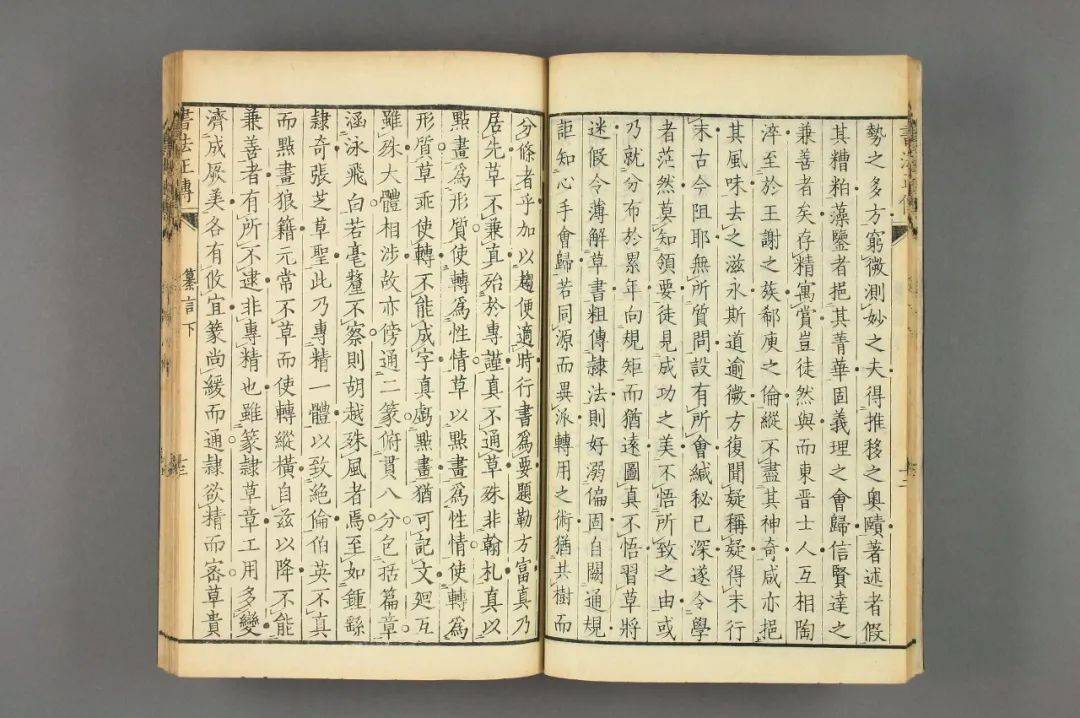 勢之多方窮微測妙之夫得推移之奧賾著述者假
其糟粕藻鑒者挹其菁華固義理之會歸信賢達之
兼善者矣存精寓賞豈徒然與而東晉士人互相陶
淬至於王謝之族郗庾之倫縱不盡其神奇咸亦挹
其風味去之滋永斯道逾微方復聞疑稱疑得末行
末古今阻耶無所質問設有所會緘秘已深遂令學
者茫然莫知領要徒見成功之美不悟所致之由或
乃就分布於累年向規矩而猶遠圖真不悟習草將
迷假令薄解草書粗傳隸法則好溺偏固自闗通規
詎知心手會歸若同源而異派轉用之術猶共樹而
分條者乎加以趨便適時行書爲要題勒方富真乃
居先草不兼真殆於專謹真不通草殊非翰札真以
點畫爲形質使轉爲性情草以點畫爲性情使轉爲
形質草乖使轉不能成字真虧點畫猶可記文廻互
雖殊大體相涉故亦傍通二篆俯貫八分包括篇章
涵泳飛白若毫釐不察則胡越殊風者焉至如鍾繇
隸奇張芝草聖此乃專精一體以致絶倫伯英不真
而點畫狼籍元常不草而使轉縱橫自茲以降不能
兼善者有所不逮非專精也雖篆隸草章工用多變
濟成厥美各有攸宜篆尚緩而通隸欲精而密草貴
書法正傳 纂言下 十三